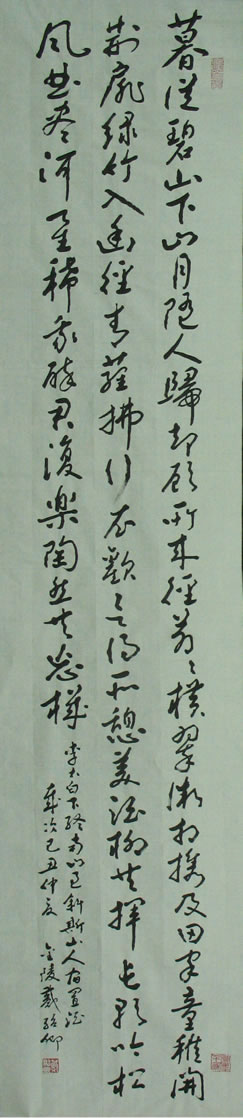 暮從碧山下山月隨人歸却顧所来徑蒼々橫翠微相携及田家童稚開
荊扉绿竹入幽徑青蘿拂行衣歡言得所憩美酒聊共揮長歌吟松
風曲盡河星稀我醉君復樂陶然共忘機
李太白下終南山過斛斯山人宿置酒
歲次己丑仲夏 金陵戴